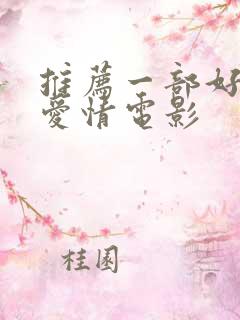 推薦一部好
愛情電影
桂園